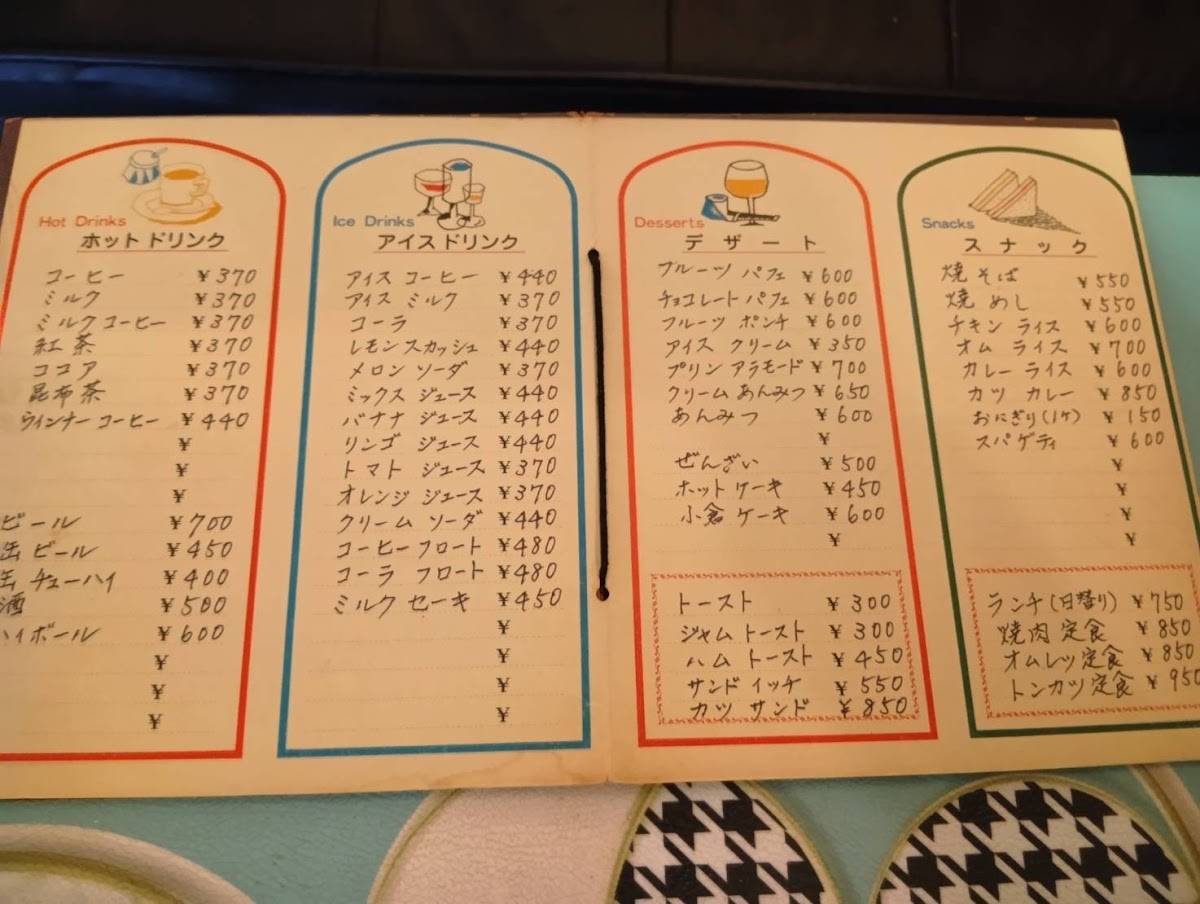 Hot Drinks
ホットドリンク
コーヒー ¥370
ミルク ¥370
ミルクコーヒー ¥370
紅茶 ¥370
ココア ¥370
昆布茶 ¥370
ウインナーコーヒー ¥440
¥
¥
¥
ビール ¥700
缶ビール ¥450
缶チューハイ ¥400
酒 ¥500
ハイボール ¥600
¥
¥
¥
Ice Drinks
アイスドリンク
アイスコーヒー ¥440
アイスミルク ¥370
コーラ ¥370
レモンスカッシュ ¥440
メロンソーダ ¥370
ミックスジュース ¥440
バナナジュース ¥440
リンゴジュース ¥440
トマトジュース ¥370
オレンジジュース ¥370
クリームソーダ ¥440
コーヒーフロート ¥480
コーラフロート ¥480
ミルクセーキ ¥450
¥
¥
¥
¥
Desserts
デザート
フルーツパフェ ¥600
チョコレートパフェ ¥600
フルーツポンチ ¥600
アイスクリーム ¥350
プリンアラモード ¥700
クリームあんみつ ¥650
あんみつ ¥600
¥
ぜんざい ¥500
ホットケーキ ¥450
小倉ケーキ ¥600
¥
トースト ¥300
ジャムトースト ¥300
ハムトースト ¥450
サンドイッチ ¥550
カツサンド ¥850
Snacks
スナック
焼そば ¥550
焼めし ¥550
チキンライス ¥600
オムライス ¥700
カレーライス ¥600
カツカレー ¥850
おにぎり(1ケ) ¥150
スパゲティ ¥600
¥
¥
¥
¥
ランチ(日替り) ¥750
焼肉定食 ¥850
オムレツ定食 ¥850
トンカツ定食 ¥950